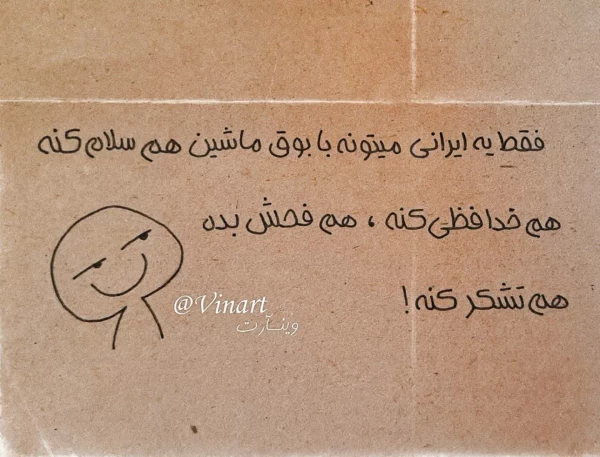 فقط یه ایرانی میتونه با بوق ماشین هم سلام کنه
هم خدافظی کنه ، هم فحش بده
هم تشکر کنه !
@Vinart
وینـآرت